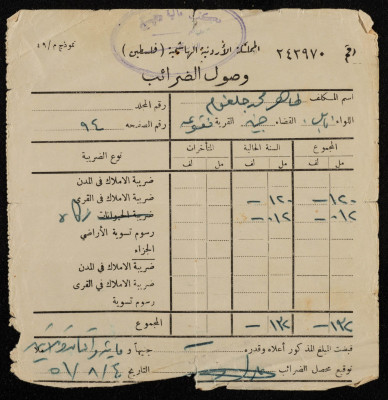 نموذج م/٤٩
المملكة الأردنية الهاشمية ( فلسطين )
رقم ٢٤٣٩٧٠
وصول الضرائب
اسم المكلف طاهر محمد
رقم المجلد
اللواء نابلس القضاء جنين القرية فقوعه
رقم الصفحة ٩٤
المجموع السنة الحالية المتأخرات نوع الضريبة
مل لف مل لف مل لف
ضريبة الاملاك في المدن
ضريبة الاملاك في القرى ١٢٠ - ١٢٠ -
ضريبة الحيوانات زكاة ٠١٢ - ٠١٢ -
رسوم تسوية الأراضي
الجزاء
ضريبة الاملاك في المدن
ضريبة الاملاك في القرى
رسوم تسوية
المجموع ١٣٢ - ١٣٢ -
قبضت المبلغ المذكور أعلاه وقدره - جنيهاً و
توقيع محصل الضرائب
التاريخ ٥٧/٨/٤